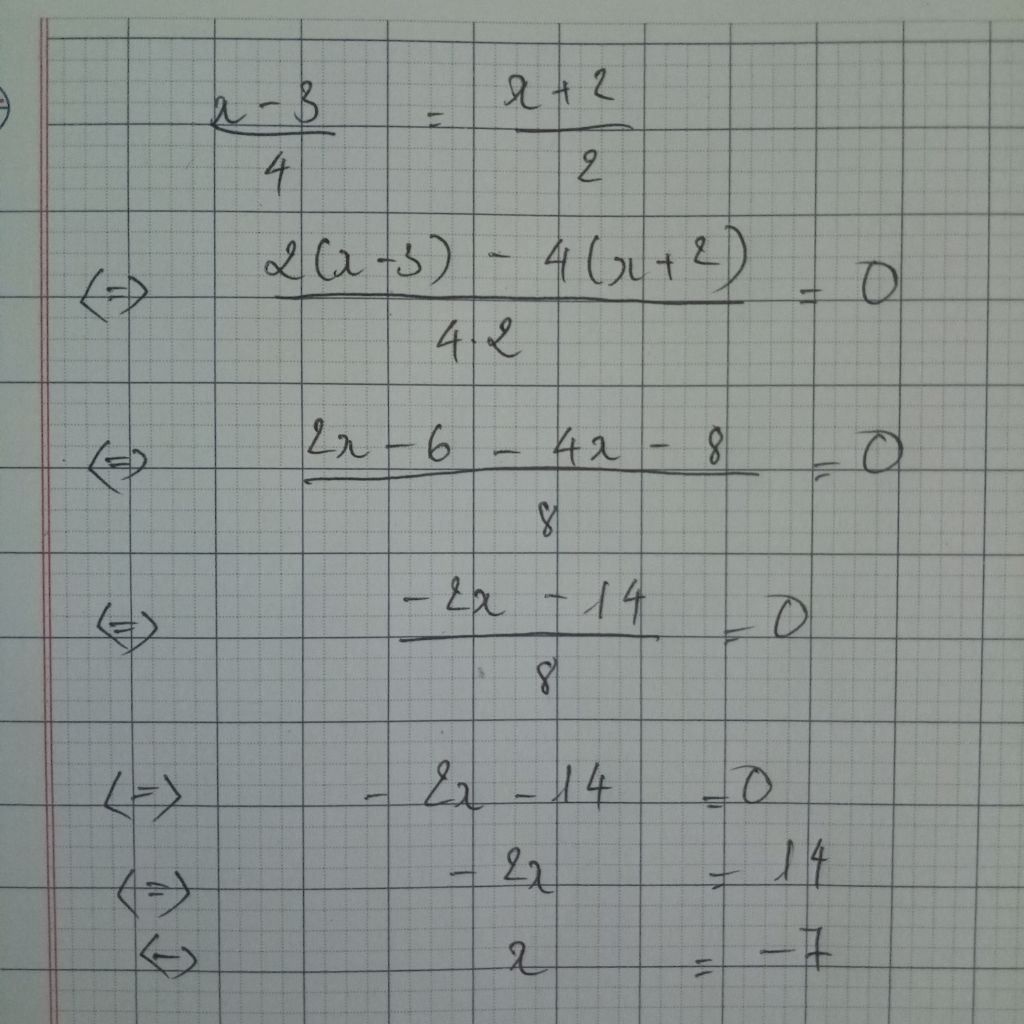 x - 3 / 4 = x + 2 / 2
<=> 2(x - 3) - 4(x + 2) / 4·2 = 0
<=> 2x - 6 - 4x - 8 / 8 = 0
<=> - 2x - 14 / 8 = 0
<=> - 2x - 14 = 0
<=> - 2x = 14
<=> x = -7